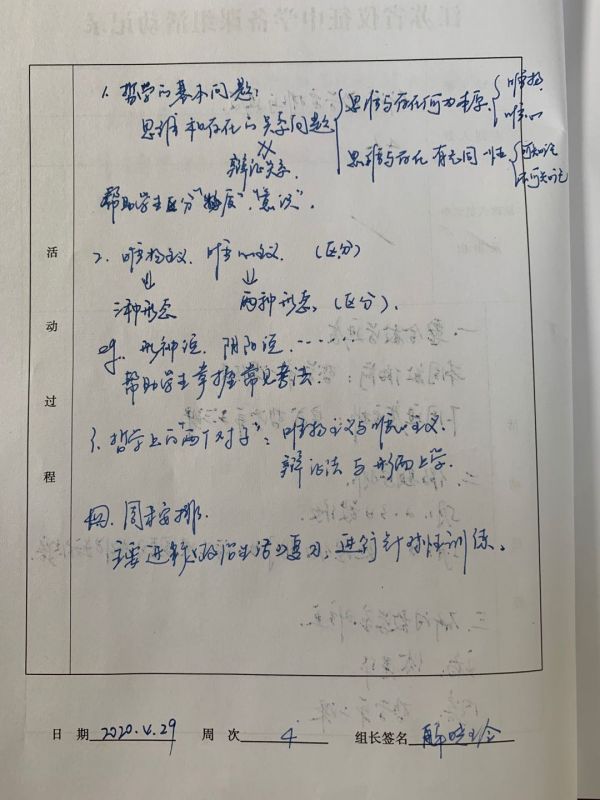 1. 哲学的基本问题：
思维和存在的关系问题
辩证关系
思维与存在何为本原
唯物
唯心
思维与存在有无同一性
可知论
不可知论
帮助学生区分"物质"、"意识"。
2. 唯物主义、唯心主义.（区分）
三种形态 两种形态（区分）.
eg. 形神说. 阴阳说. ……
帮助学生掌握常见考法.
3. 哲学上的"两个对子"：唯物主义与唯心主义.
辩证法与形而上学.
四. 周末安排.
主要进行《政治生活》复习，进行针对性训练。
活动过程
日期 2020.4.29 周次 4 组长签名